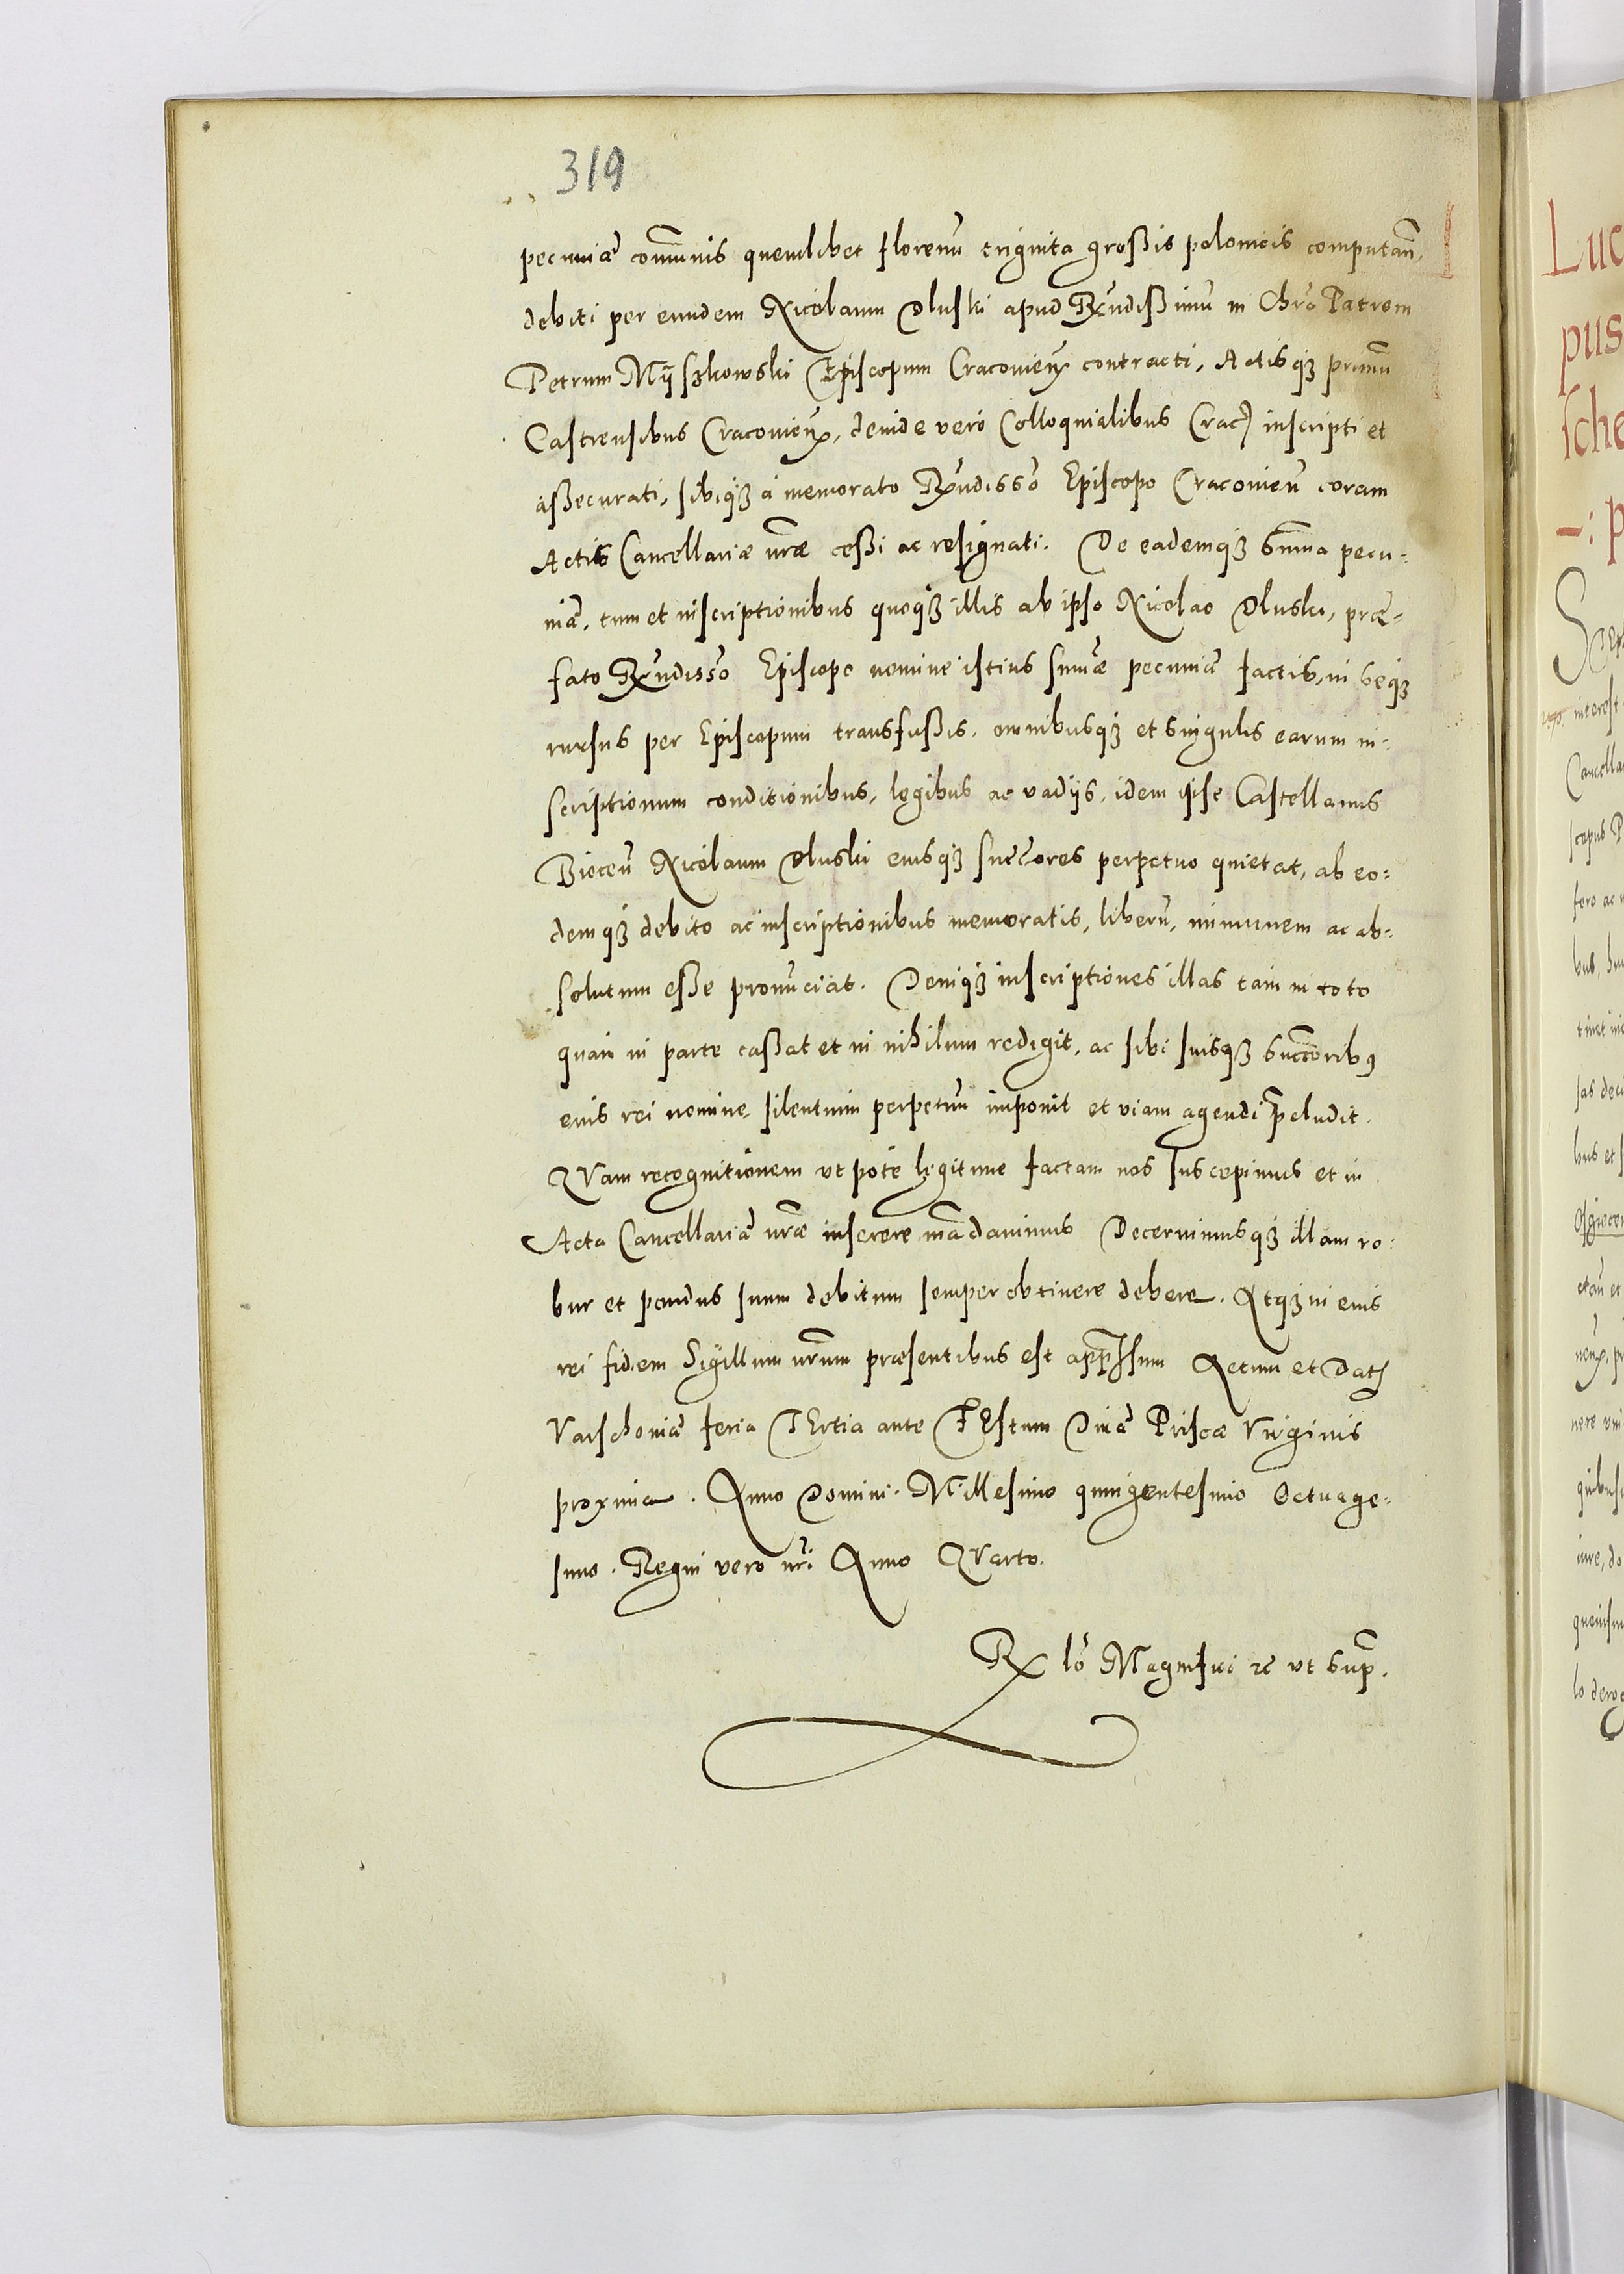 319
pecuniæ com̃unis quemlibet florenũ triginta grossis polonicis computañ,
debiti per eundem Nicolaum Dluski apud Rñdissimũ in Chr̃o Patrem
Petrum Mÿszkowski Episcopum Cracovieñ contracti, Actisq3 primũ
Castrensibus Cracovieñ, deinde vero Colloquialibus Crac̃ inscripti et
assecurati, sibiq3 a memorato Rñdisso Episcopo Cracovieñ coram
Actis Cancellariæ nr̃æ cessi ac resignati. De eademq3 Sum̃a pecu-
niæ, tum et inscriptionibus quoq3 illis ab ipso Nicolao Dluski, præ-
fato Rñdisso Episcopo nomine istius sum̃æ pecuniæ factis, in seq3
rursus per Episcopum transfussis, omnibusq3 et singulis earum in-
scriptionum conditionibus, legibus ac vadijs, idem ipse Castellanus
Bieceñ Nicolaum Dluski eiusq3 succ̃ores perpetuo quietat, ab eo-
demq3 debito ac inscriptionibus memoratis, liberũ, immunem ac ab-
solutum esse pronũciat. Deniq3 inscriptiones illas tam in toto
quam in parte cassat et in nihilum redigit, ac sibi suisq3 succ̃orib9
eius rei nomine silentium perpetuũ imponit et viam agendi p̃cludit.
QVam recognitionem vt pote legitime factam nos suscepimus et in
Acta Cancellariæ nr̃æ inserere mãdavimus Decernimusq3 illam ro-
bur et pondus suum debitum semper obtinere debere. Atq3 in eius
rei fidem Sigillum nr̃um præsentibus est app̃ssum Actum et Dat̃
Varschoviæ feria TErtia ante FEstum Divæ Priscæ Virginis
proxima. Anno Domini. Millesimo quingentesimo Octuage-
simo. Regni vero nr̃i Anno QVarto.
Rx lõ Magnifici rc vt sup̃.
Luc
pus
sche
-: p